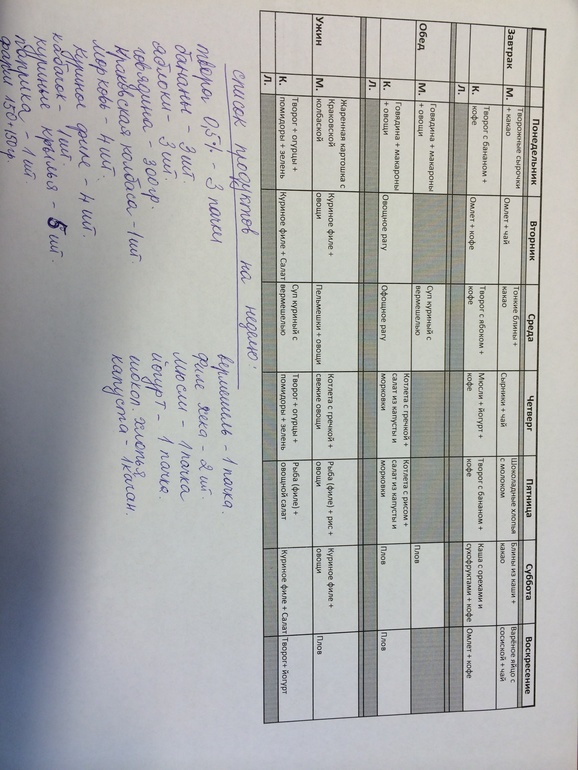 Понедельник Вторник Среда Четверг Пятница Суббота Воскресение
Завтрак
М. Творожные сырочки + какао Омлет + чай Тонкие блины + какао Сырники + чай Шоколадные хлопья с молоком Блины из каши + какао Варёное яйцо с сосиской + чай
К. Творог с бананом + кофе Омлет + кофе Творог с яблоком + кофе Мюсли + йогурт + кофе Творог с бананом + кофе Каша с орехами и сухофруктами + кофе Омлет + кофе
Л.
Обед
М. Говядина + макароны + овощи Суп куриный с вермешелью Котлета с гречкой + салат из капусты и морковки Котлета с рисом + салат из капусты и морковки Плов
К. Говядина + макароны + овощи Овощное рагу Офощное рагу Плов Плов
Л.
Ужин
М. Жаренная картошка с Краковской колбаской Куриное филе + овощи Пельмешки + овощи Котлета с гречкой + свежие овощи Рыба (филе) + рис + овощи Куриное филе + овощи Плов
К. Творог + огурцы + помидоры + зелень Куриное филе + Салат Суп куриный с вермешелью Творог + огурцы + помидоры + зелень Рыба (филе) + овощной салат Куриное филе + Салат Творог+ йогурт
Л.
список продуктов на неделю:
творог 0,5% 3 пачки
бананы - 3 шт.
яблоки 3 шт.
говядина - 300гр.
краковская колбаса - 1шт.
морковь - 4 шт.
куриное филе - 4 шт.
кабачок - 1шт.
куриные крылья - 5 шт.
паприка - 1 шт
фарш 150+150гр.
вермешель - 1 пачка.
филе язя - 2 шт.
мюсли - 1 пачка
йогурт - 1 пачка.
шокол. хлопья
капуста - 1 качан.